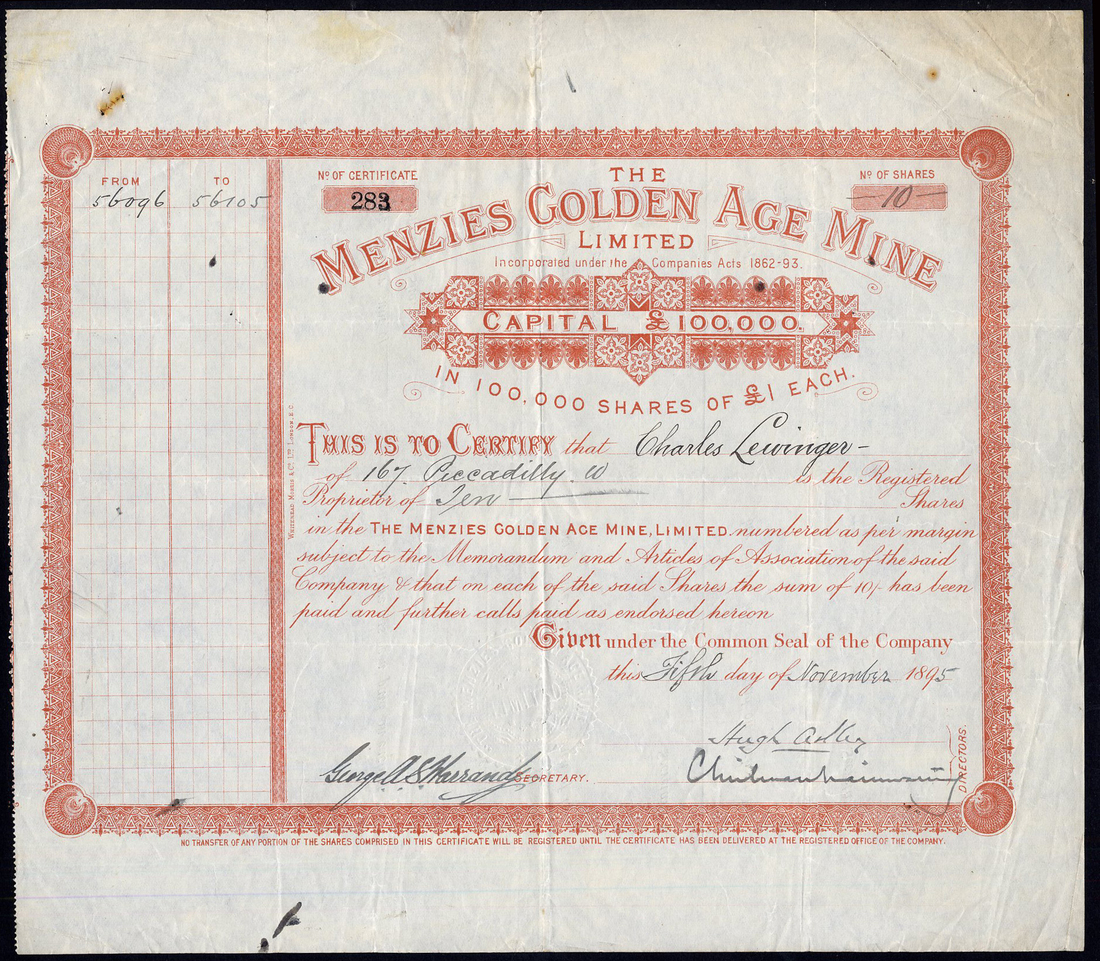 FROM TO
56096 56105
Nº OF CERTIFICATE
283
Nº OF SHARES
10
THE
MENZIES GOLDEN AGE MINE
LIMITED
Incorporated under the Companies Acts 1862-93.
CAPITAL £100,000.
IN 100,000 SHARES OF £1 EACH.
THIS IS TO CERTIFY that Charles Lewinger
of 167 Piccadilly. W is the Registered
Proprietor of Ten Shares
in the THE MENZIES GOLDEN AGE MINE, LIMITED. numbered as per margin
subject to the Memorandum and Articles of Association of the said
Company & that on each of the said Shares the sum of 10/- has been
paid and further calls paid as endorsed hereon
Given under the Common Seal of the Company
this Fifth day of November 1895
Hugh
George A S Warrand SECRETARY.
DIRECTORS.
WHITEHEAD MORRIS & Co. LTD LONDON, E.C.
NO TRANSFER OF ANY PORTION OF THE SHARES COMPRISED IN THIS CERTIFICATE WILL BE REGISTERED UNTIL THE CERTIFICATE HAS BEEN DELIVERED AT THE REGISTERED OFFICE OF THE COMPANY.